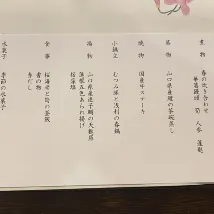 煮物
春の炊き合わせ
蒸物
山口県産鰆の茶碗蒸し
焼物
国産牛ステーキ
小鍋立
むつみ豚と浅利の春鍋
揚物
山口県産逆子鯛の天麩羅
蓮根五色あられ揚げ
桜藻塩
食事
桜海老と筍の釜飯
香の物
赤だし
水菓子
季節の水菓子